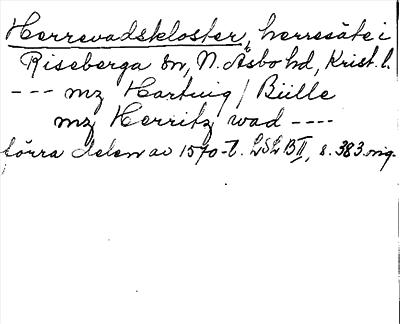 Herrevadskloster, herresäte i
Riseberga sn, N. Åsbo hd, Krist. l.
--- mz Hartuig / Bülle
mz Herritz wad ----
förra delen av 1570-t. LSLB II, s. 383